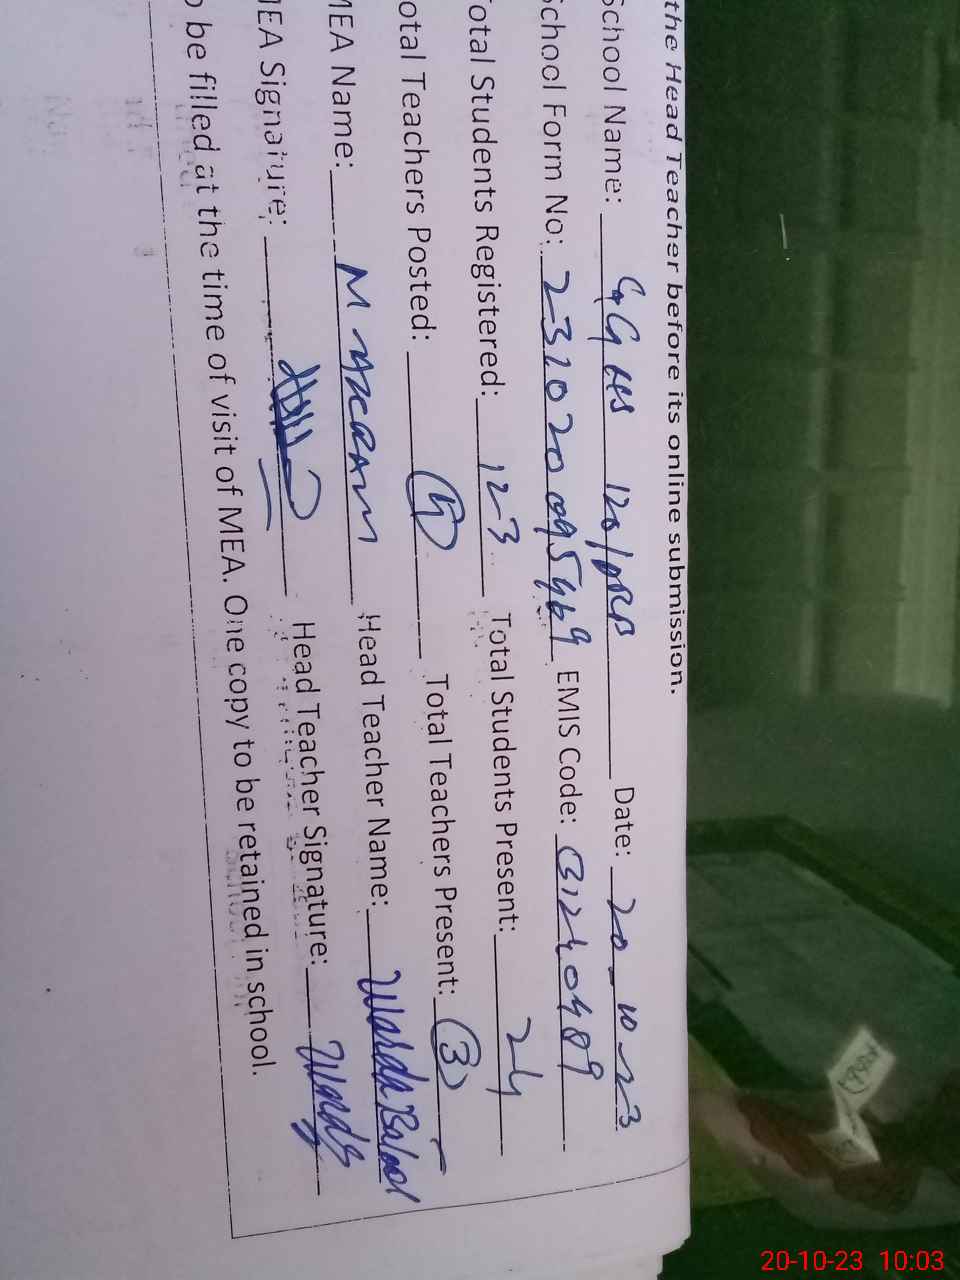 the Head Teacher before its online submission.
School Name: GGHS 120/DRB Date: 20-10-23
School Form No: 231020095469 EMIS Code: 31240489
Total Students Registered: 123 Total Students Present: 24
Total Teachers Posted: 5 Total Teachers Present: 3
MEA Name: M Head Teacher Name: Warda Batool
MEA Signature: Head Teacher Signature: Warda
o be filled at the time of visit of MEA. One copy to be retained in school.
20-10-23 10:03